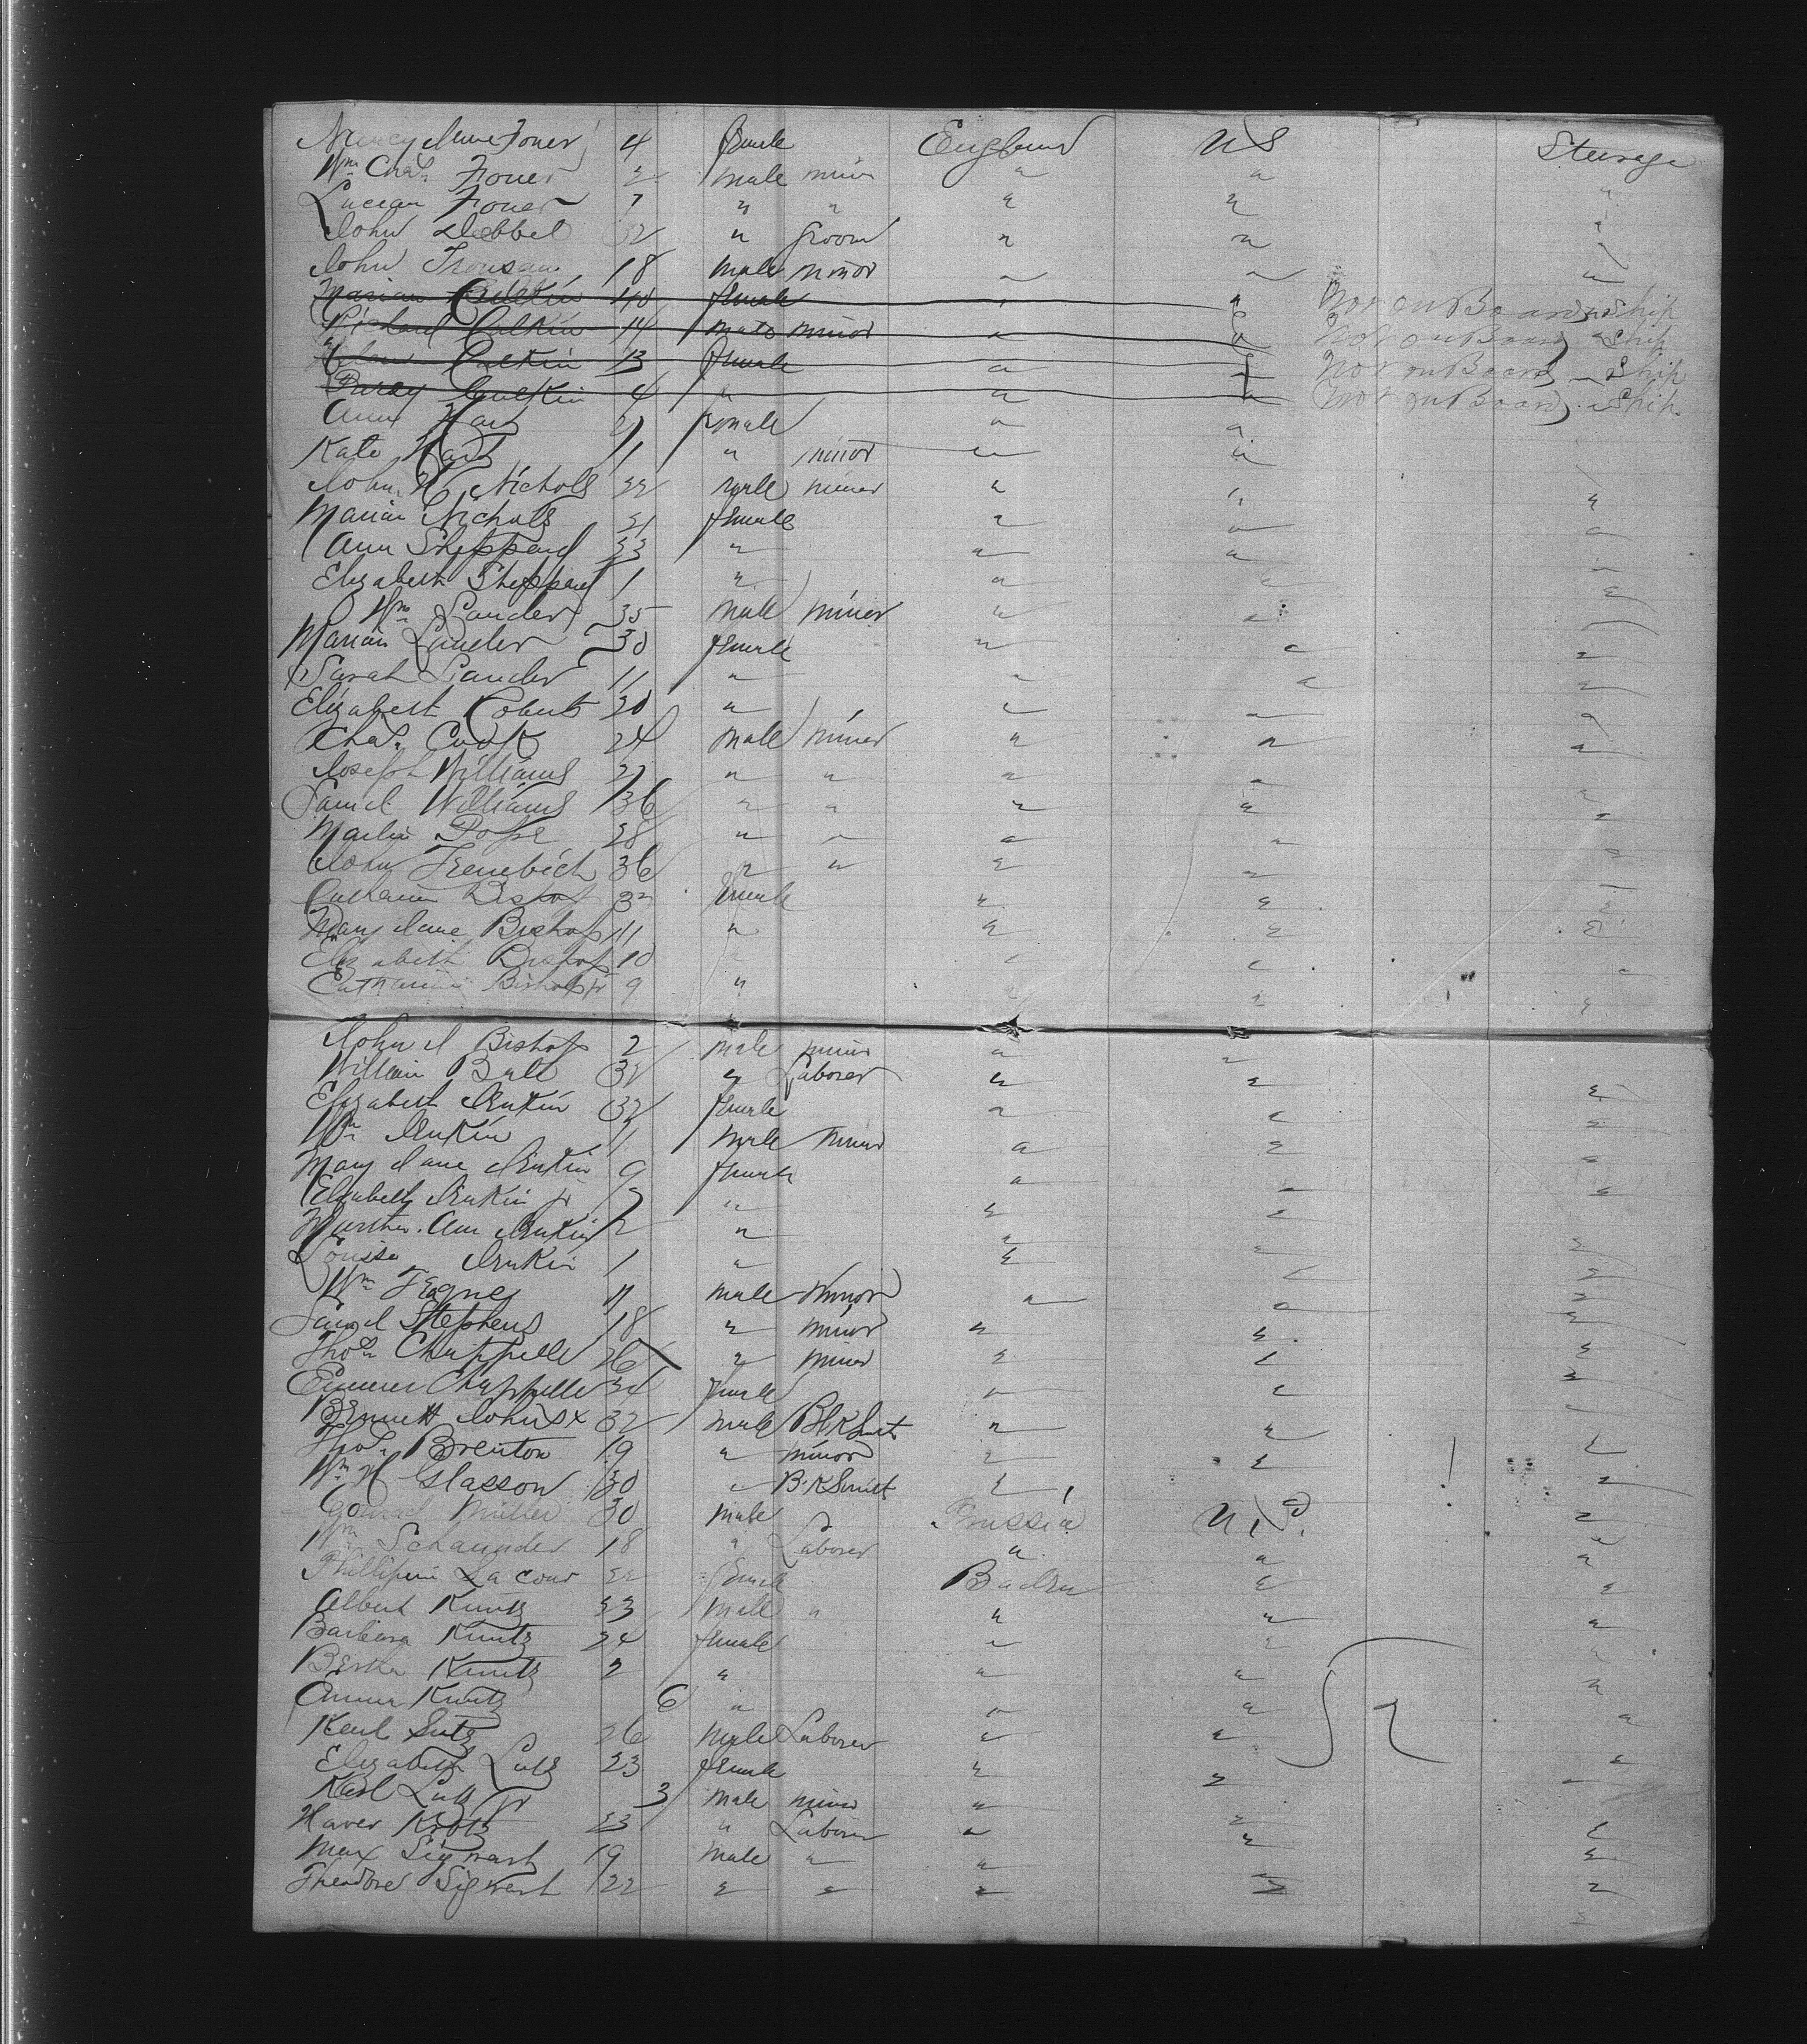 Nancy Jane Foner 4 female England US Steerage
Wm Chas. Foner 2 male minor " "
Lucian Foner 7 " " " " "
John 32 " Groom " " "
John 18 male minor " " "
Marian Culkin 40 female " " Not on Board Ship
Richard Culkin 14 male minor " " Not on Board Ship
Culkin 13 female " " Not on Board Ship
Culkin 4 " " " Not on Board Ship
Ann Hart 27 female " "
Kate Hart 11 " minor " "
John H Nicholls 22 male miner " " "
Marian Nicholls 21 female " " "
Ann Sheppard 23 " " " "
Elizabeth Sheppard 1 " " " "
Wm Lander 35 male miner " " "
Marian Lander 30 female " " "
Sarah Lander 11 " " " "
Elizabeth Roberts 20 " " " "
Chas. Cook 24 male miner " " "
Joseph Williams 27 " " " " "
Saml Williams 36 " " " " "
Martin Pope 28 " " " " "
John 36 " " " " "
Catharine Bishop 32 female " " "
Mary Jane Bishop 11 " " " "
Elizabeth Bishop 10 " " " "
Catharine Bishop Jr 9 " " " "
John J Bishop 2 male minor " "
William Ball 32 " Laborer " " "
Elizabeth Jenkin 32 female " " "
Wm Jenkin 11 male minor " " "
Mary Jane Jenkin 9 female " " "
Elizabeth Jenkin Jr 5 " " "
Martha Ann Jenkin 2 " " " "
Louisa Jenkin 1 " " " "
Wm 11 male minor " " "
Saml Stephens 18 " minor " " "
Thos. Chappelle 26 " miner " " "
Emma Chappelle 24 female " " "
Bennett Johns x 32 male BlkSmith " "
Thos. Brenton 19 " minor " " "
Wm H Glasson 30 " BlkSmith " " "
Conrad Müller 30 male Prussia U.S. "
Wm Schaunder 18 " Laborer " " "
Phillipine La cour 22 female Baden " "
Albert Kuntz 33 male " " " "
Barbara Kuntz 24 female " " "
Bertha Kuntz 2 " " " "
Anna Kuntz 6 " " " "
Karl Lutz 26 male Laborer " " "
Elizabeth Lutz 23 female " " "
Karl Lutz Jr 3 male minor " "
Xaver Krotz 23 " Laborer " " "
Max Sigwart 19 male " " " "
Theodore Sigwart 22 " " " " "